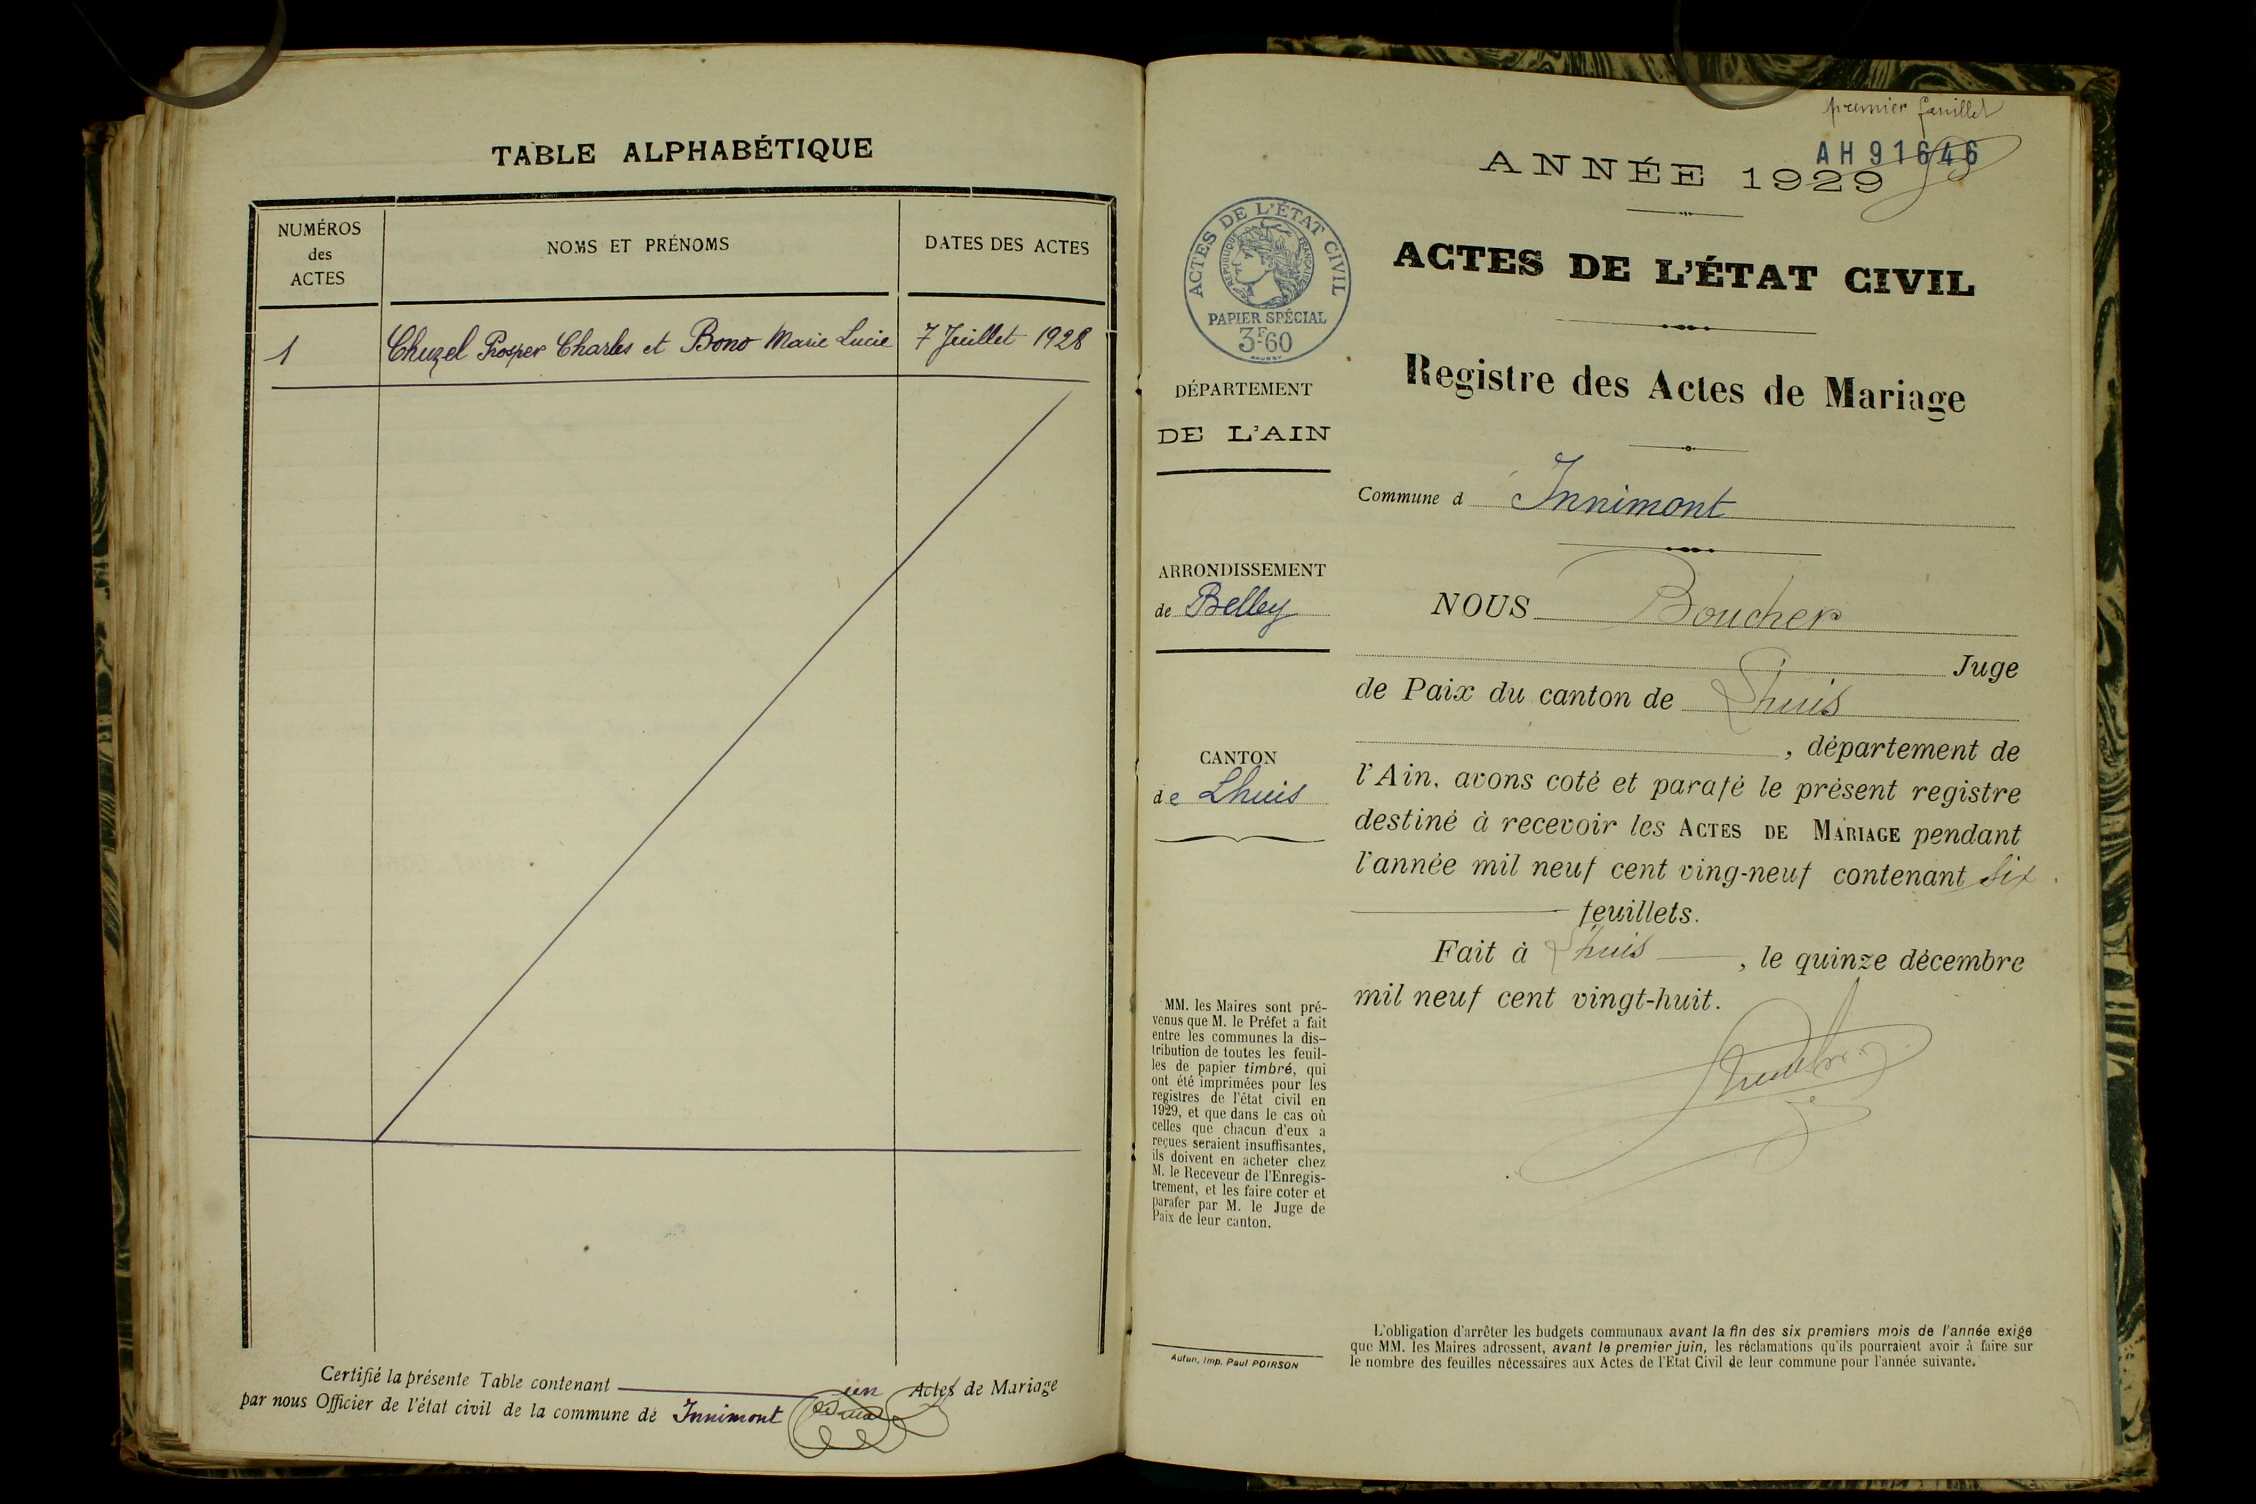 TABLE ALPHABÉTIQUE
NUMÉROS
des
ACTES
NOMS ET PRÉNOMS
DATES DES ACTES
1 Chuzel Prosper Charles et Bono Marie Lucie 7 Juillet 1928
Certifié la présente Table contenant un Actes de Mariage
par nous Officier de l'état civil de la commune de Innimont
premier feuillet
AH 91646
ANNÉE 1929
ACTES DE L'ÉTAT CIVIL
RÉPUBLIQUE FRANÇAISE
PAPIER SPÉCIAL
3F60
ACTES DE L'ÉTAT CIVIL
Registre des Actes de Mariage
DÉPARTEMENT
DE L'AIN
Commune d Innimont
ARRONDISSEMENT
de Belley
NOUS Boucher
Juge
de Paix du canton de Lhuis
, département de
CANTON
de Lhuis
l'Ain, avons coté et parafé le présent registre
destiné à recevoir les ACTES DE MARIAGE pendant
l'année mil neuf cent ving-neuf contenant six
feuillets.
Fait à Lhuis, le quinze décembre
mil neuf cent vingt-huit.
MM. les Maires sont pré-
venus que M. le Préfet a fait
entre les communes la dis-
tribution de toutes les feuil-
les de papier timbré, qui
ont été imprimées pour les
registres de l'état civil en
1929, et que dans le cas où
celles que chacun d'eux a
reçues seraient insuffisantes,
ils doivent en acheter chez
M. le Receveur de l'Enregis-
trement, et les faire coter et
parafer par M. le Juge de
Paix de leur canton.
Autun, Imp. Paul POIRSON
L'obligation d'arrêter les budgets communaux avant la fin des six premiers mois de l'année exige
que MM. les Maires adressent, avant le premier juin, les réclamations qu'ils pourraient avoir à faire sur
le nombre des feuilles nécessaires aux Actes de l'Etat Civil de leur commune pour l'année suivante.